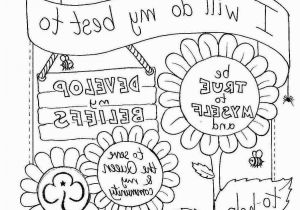 I will do my best to
be
TRUE
to
MYSELF
and
DEVELOP
my
BELIEFS
To serve
the Queen
& my
community
to help